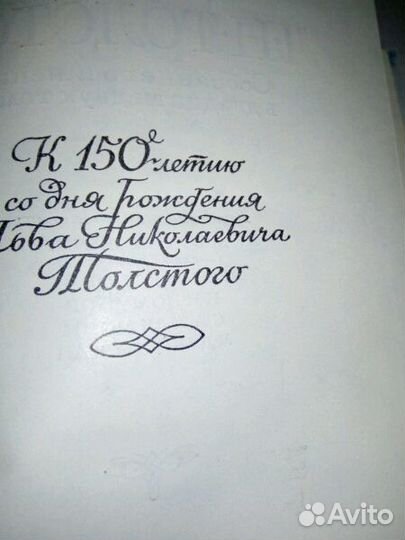 К 150-летию
со дня рождения
Льва Николаевича
Толстого
Avito